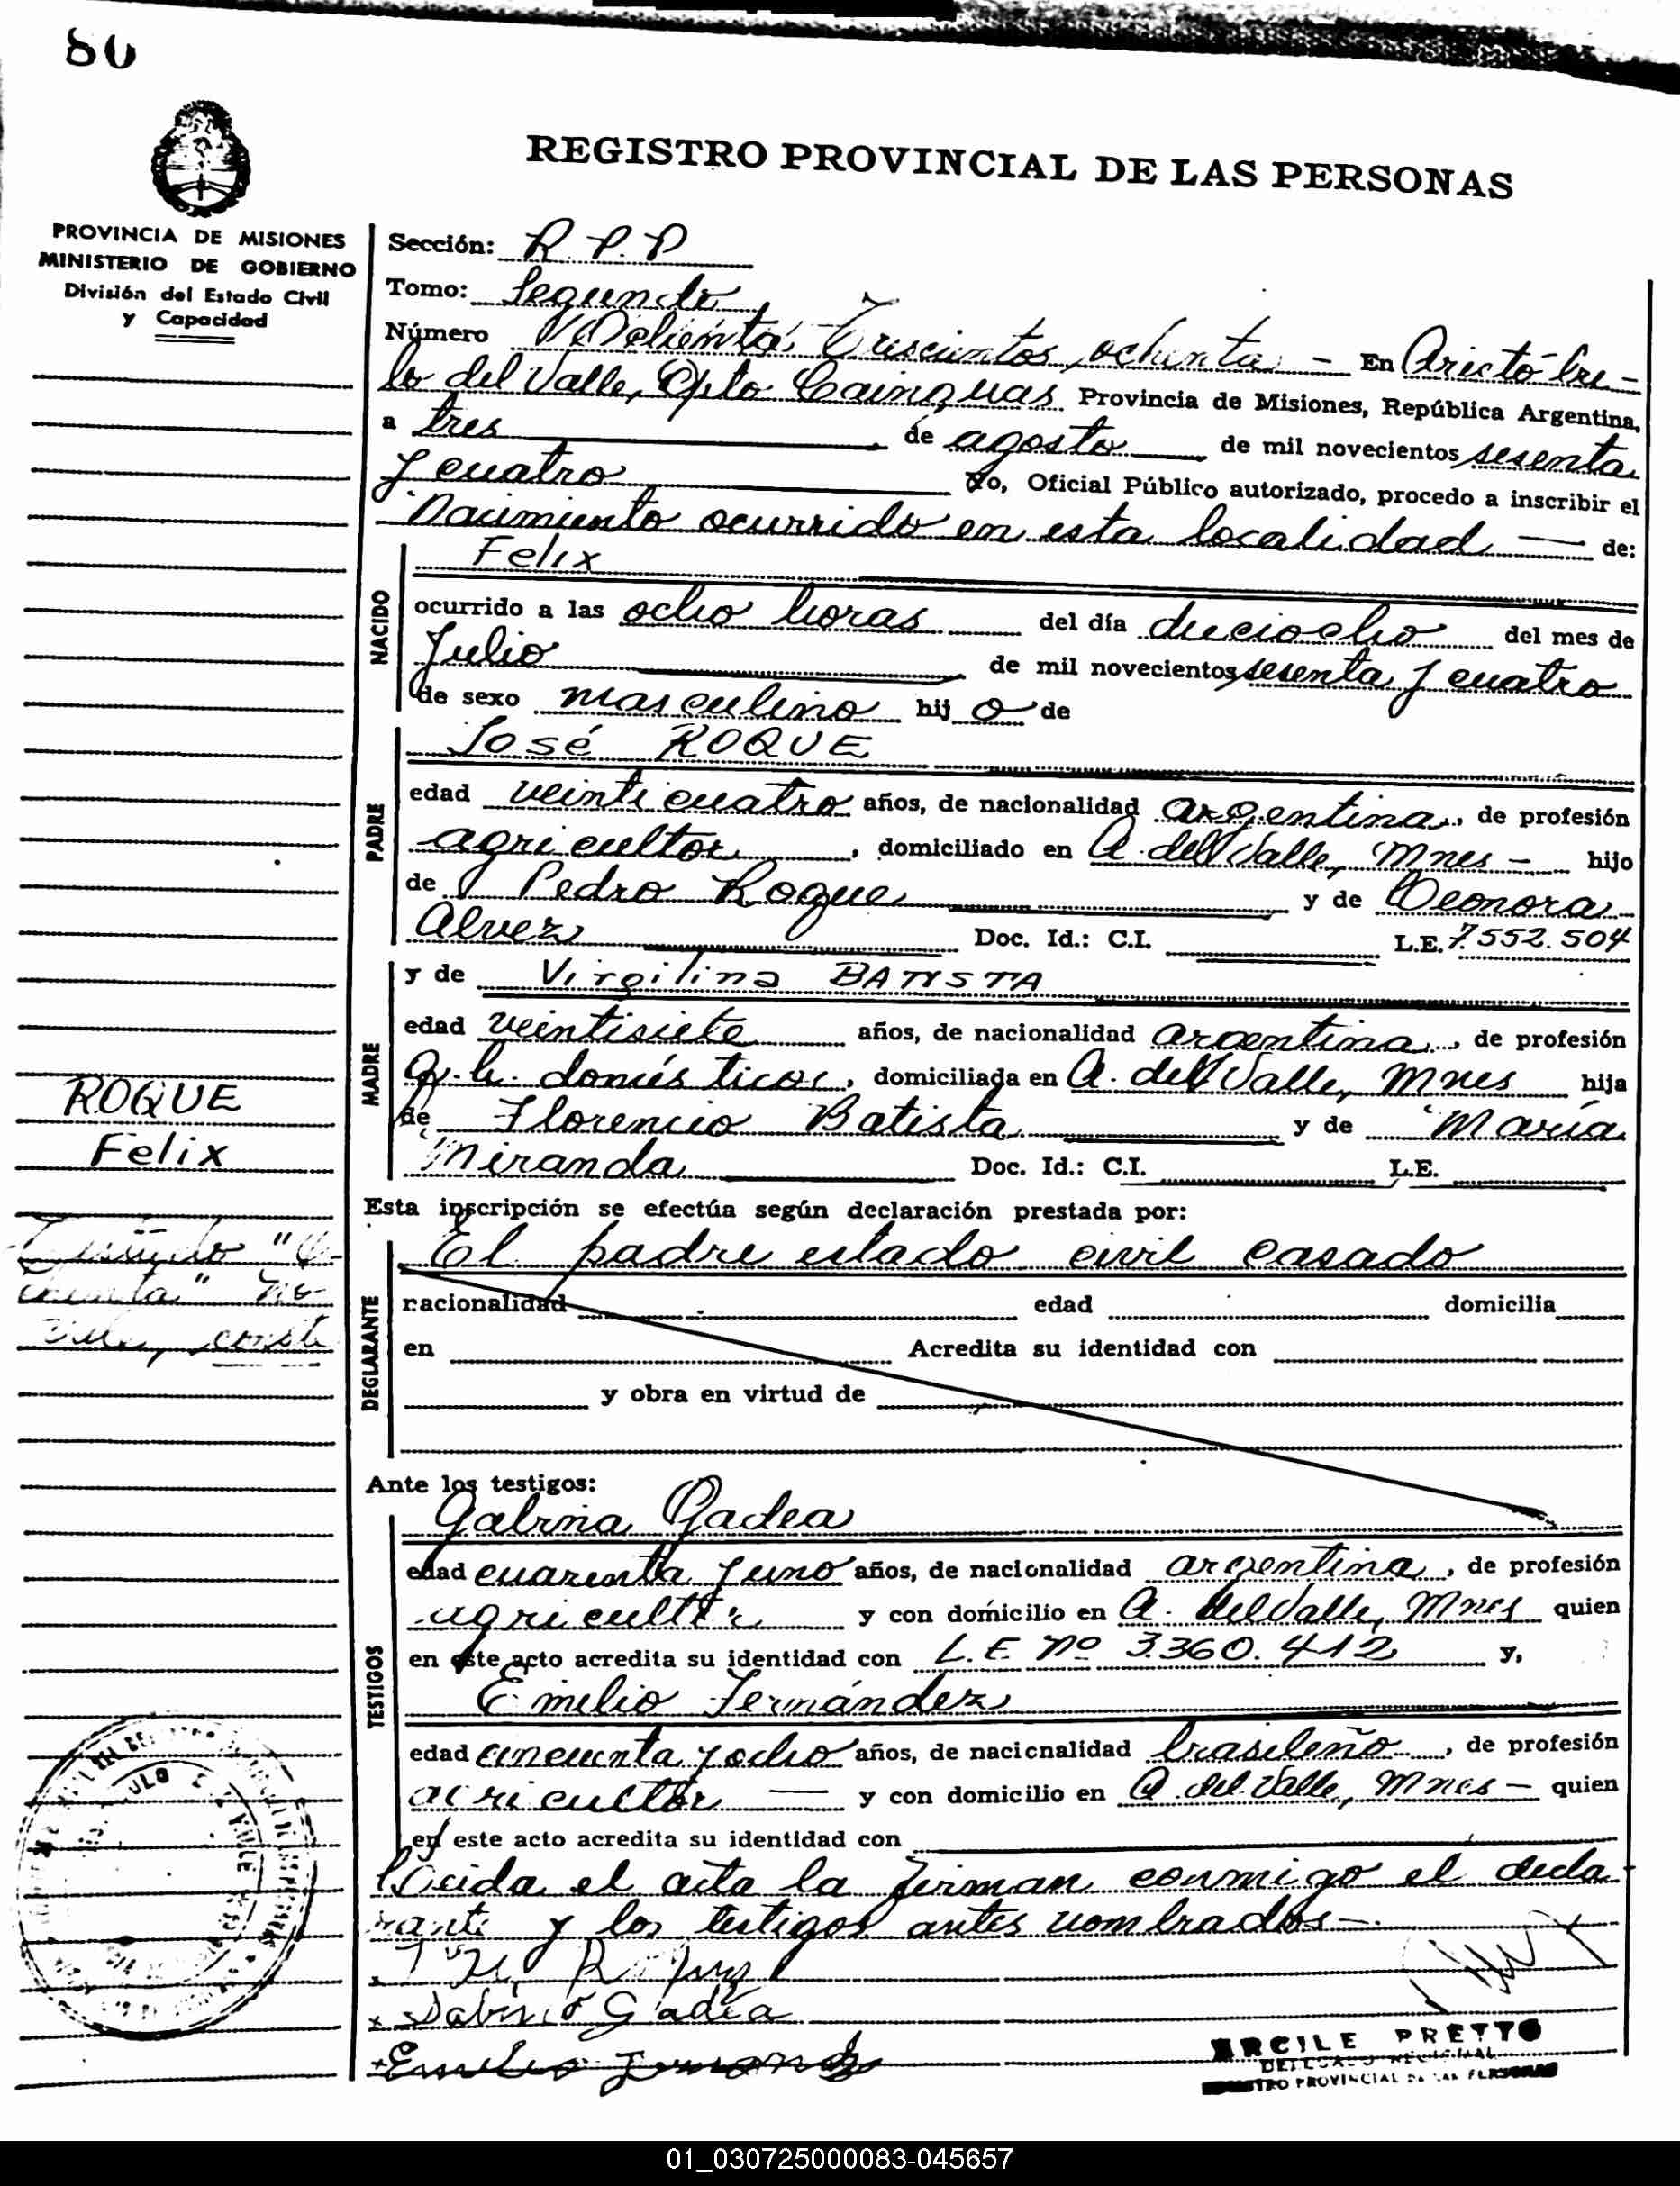 80
REGISTRO PROVINCIAL DE LAS PERSONAS
PROVINCIA DE MISIONES
MINISTERIO DE GOBIERNO
División del Estado Civil
y Capacidad
Sección: R.P.P
Tomo: Segundo
Número Trescientos ochenta - En Aristóbu-
lo del Valle, Dpto Cainguas Provincia de Misiones, República Argentina,
a tres de agosto de mil novecientos sesenta
y cuatro Yo, Oficial Público autorizado, procedo a inscribir el
Nacimiento ocurrido en esta localidad — de:
NACIDO
Felix
ocurrido a las ocho horas del día dieciocho del mes de
Julio de mil novecientos sesenta y cuatro
de sexo masculino hijo de
PADRE
José ROQUE
edad veinticuatro años, de nacionalidad argentina, de profesión
agricultor, domiciliado en A. del Valle, Mnes - hijo
de Pedro Roque y de Leonora
Alvez Doc. Id.: C.I. L.E. 7.552.504
MADRE
y de Virgilina BATISTA
edad veintisiete años, de nacionalidad argentina, de profesión
q.h. domésticos, domiciliada en A. del Valle, Mnes hija
de Florencio Batista y de María
Miranda Doc. Id.: C.I. L.E.
ROQUE
Felix
Esta inscripción se efectúa según declaración prestada por:
DECLARANTE
El padre estado civil casado
nacionalidad edad domicilia
en Acredita su identidad con
y obra en virtud de
"O-
chenta" no
vale, conste
Ante los testigos:
TESTIGOS
Gabina Gadea
edad cuarenta y uno años, de nacionalidad argentina, de profesión
agricultor y con domicilio en A. del Valle, Mnes quien
en este acto acredita su identidad con L.E Nº 3.360.412 y,
Emilio Fernández
edad cincuenta y ocho años, de nacionalidad brasileño, de profesión
agricultor — y con domicilio en A. del Valle, Mnes - quien
en este acto acredita su identidad con
Leida el acta la firman conmigo el decla-
rante y los testigos antes nombrados-.
x Sabino Gadea
x Emilio Fernandez
ERCILE PRETTO
DELEGADO REGIONAL
REGISTRO PROVINCIAL DE LAS PERSONAS
01_030725000083-045657